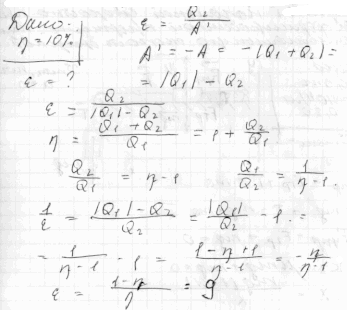 Дано:
η = 10%
ε = ?
ε = Q₂/A'
A' = -A = -(Q₁ + Q₂) =
= |Q₁| - Q₂
ε = Q₂/(|Q₁| - Q₂)
η = (Q₁ + Q₂)/Q₁ = 1 + Q₂/Q₁
Q₂/Q₁ = η - 1    Q₁/Q₂ = 1/(η - 1).
1/ε = (|Q₁| - Q₂)/Q₂ = |Q₁|/Q₂ - 1 =
= 1/(η - 1) - 1 = (1 - η + 1)/(η - 1) = -η/(η - 1)
ε = (1 - η)/η = 9